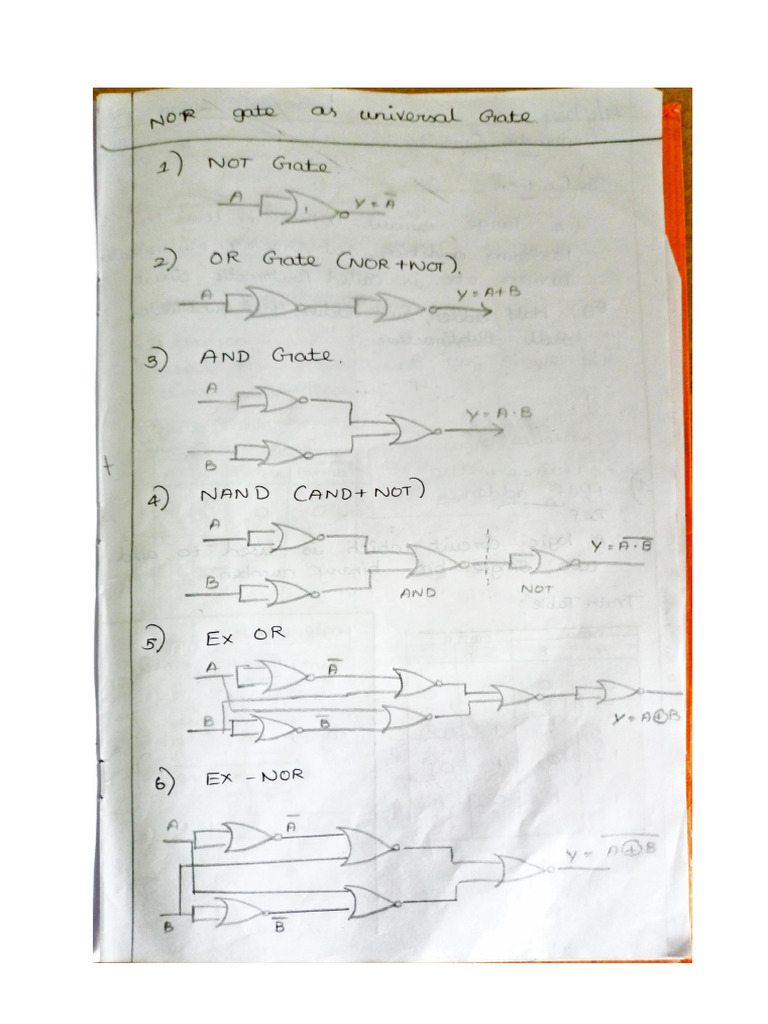 NOR gate as universal Gate
1) NOT Gate
A Y = A̅
2) OR Gate (NOR+NOT).
A Y = A+B
3) AND Gate.
A
Y = A·B
B
4) NAND (AND+NOT)
A
Y = A̅·̅B̅
B
AND NOT
5) EX OR
A A̅
B B̅
Y = A⊕B
6) EX - NOR
A A̅
Y = A̅⊕̅B̅
B B̅